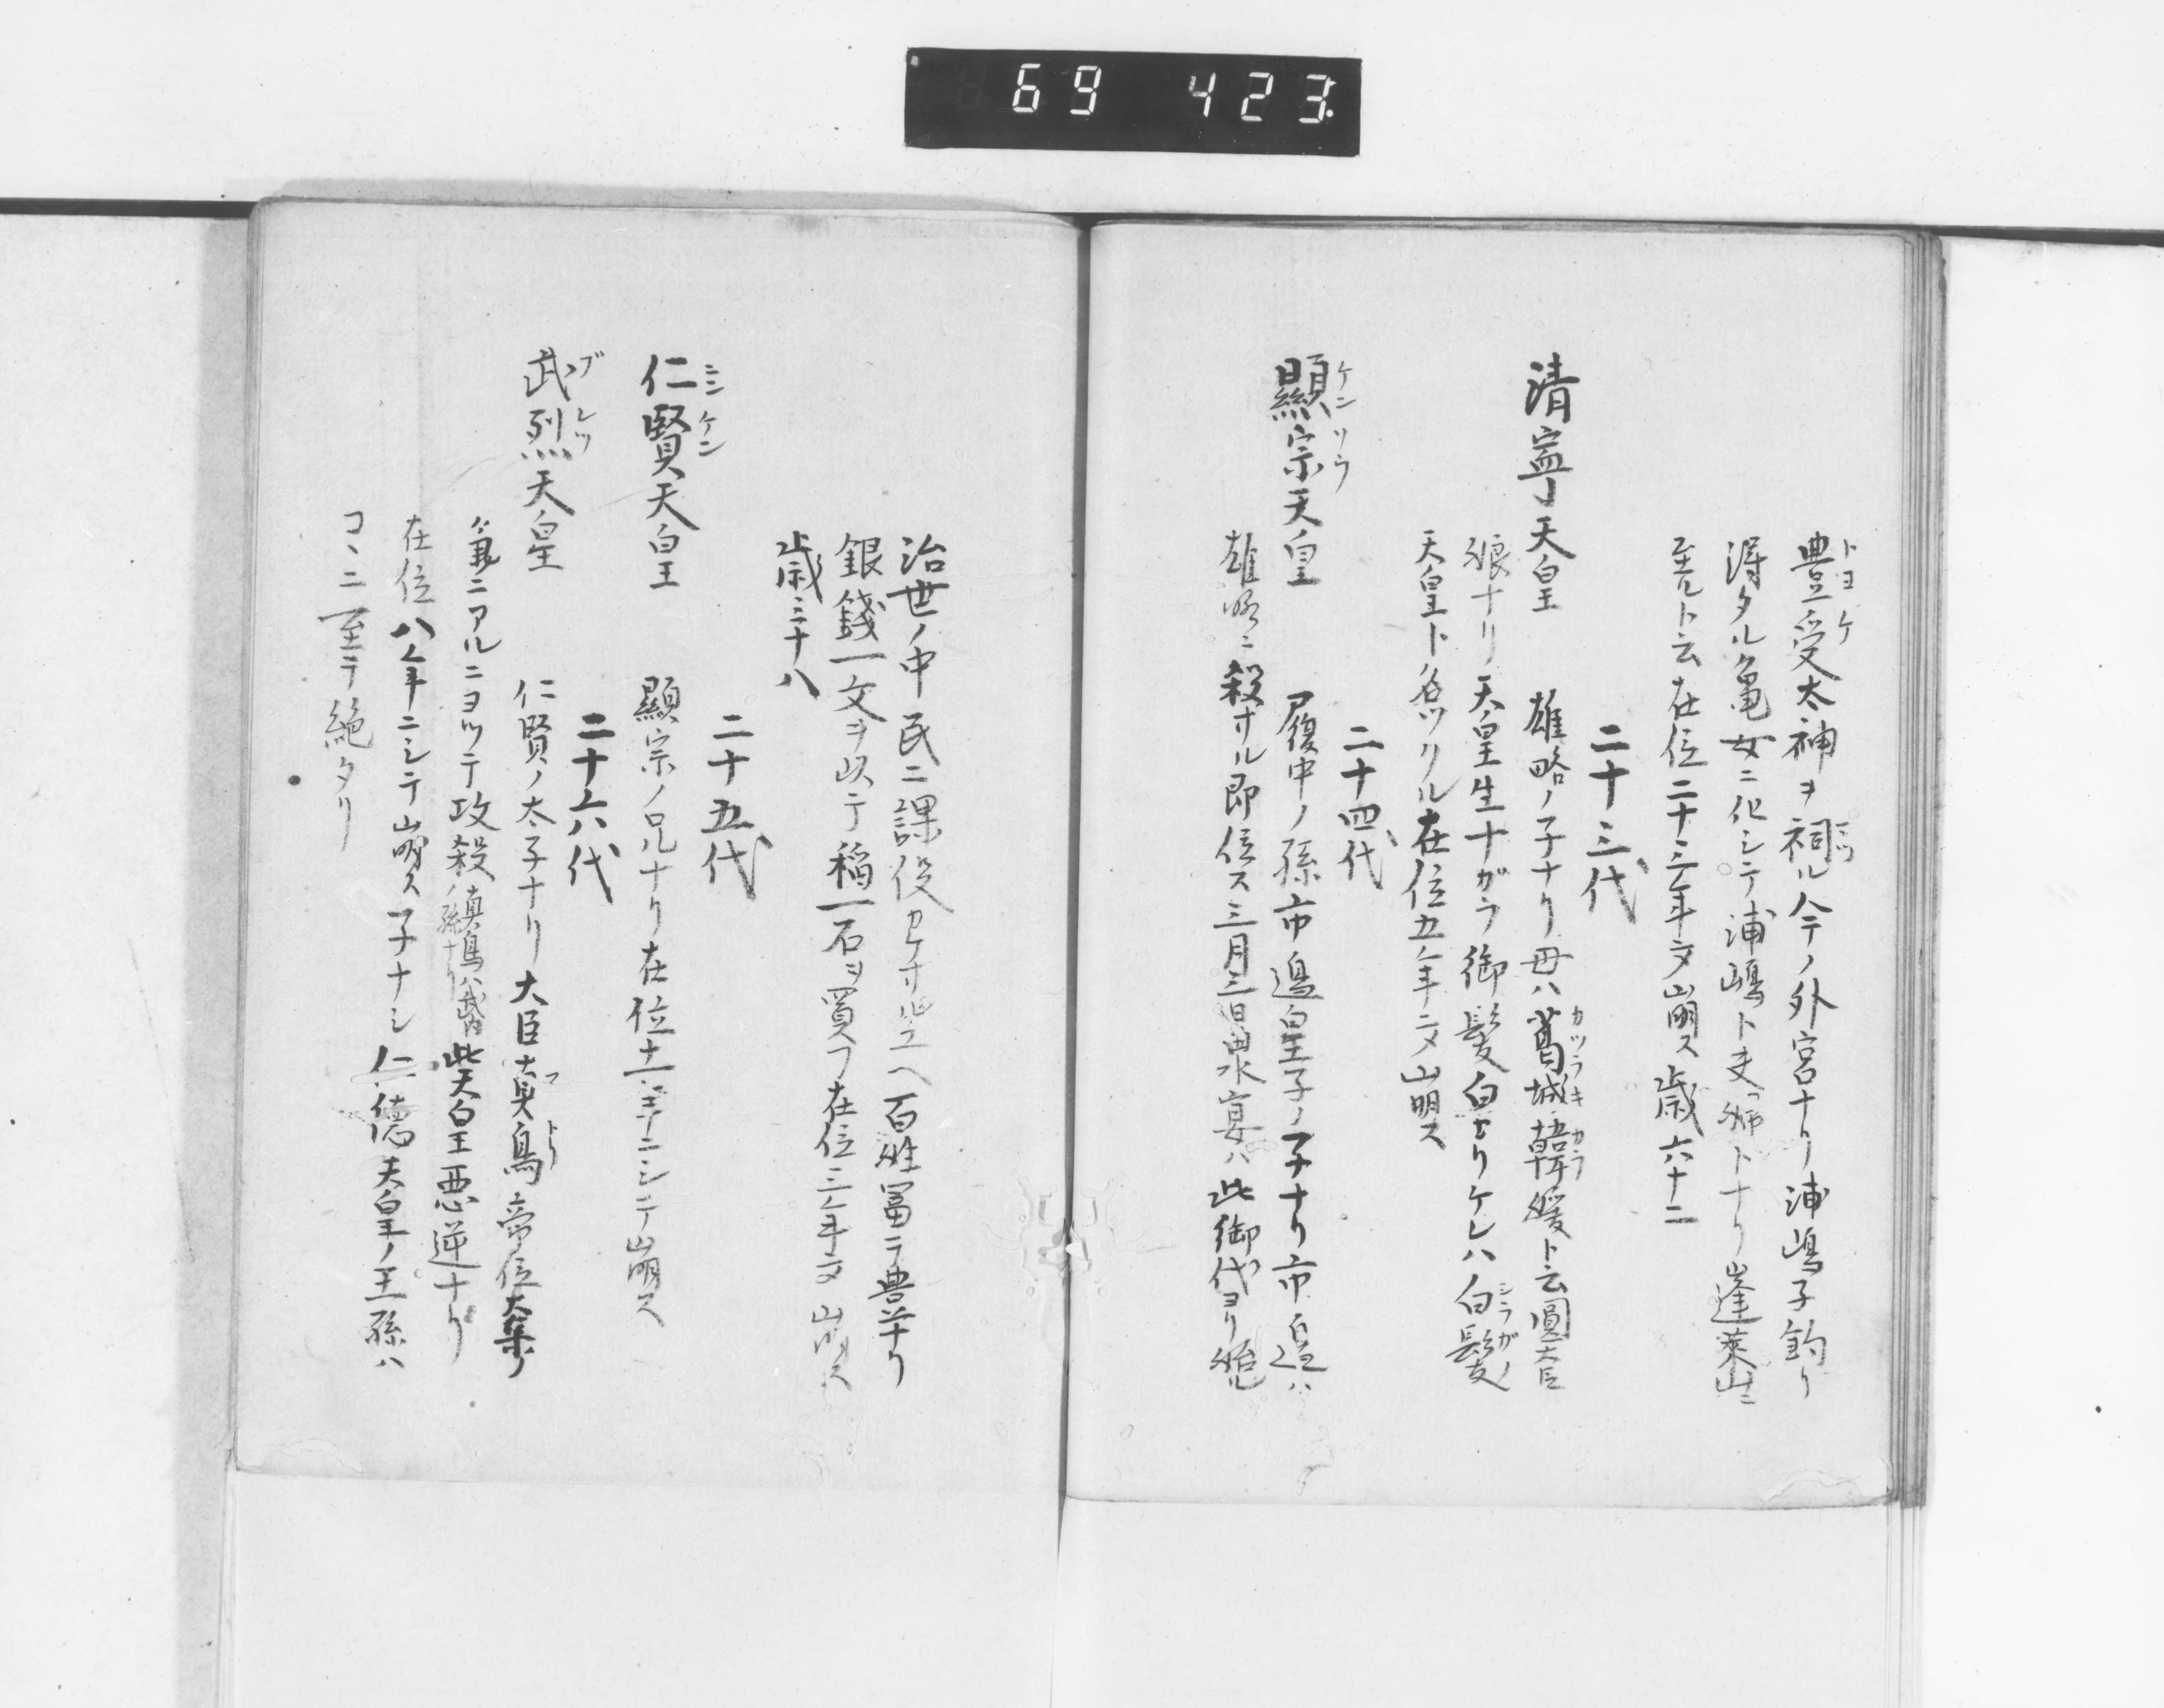 69 423
豊受太神ヲ祠ル今ノ外宮ナリ浦嶋子釣リ
得タル亀女ニ化シテ浦嶋ト夫婦トナリ蓬萊山ニ
至ルト云在位二十三年ニ〆崩ス歳六十二
二十三代
清寧天皇 雄略ノ子ナリ母ハ葛城韓媛ト云圓大臣
娘ナリ天皇生ナガラ御髪白カリケレハ白髪
天皇ト名ツクル在位五年ニ〆崩ス
二十四代
顯宗天皇 履中ノ孫市邉皇子ノ子ナリ市邉ハ
雄略ニ殺サル即位ス三月三日曲水宴ハ此御代ヨリ始ル
治世ノ中民ニ課役カケサル故ヘ百姓冨テ豊ナリ
銀錢一文ヲ以テ稲一石ヲ買フ在位三年ニ〆崩ス
歳三十八
二十五代
仁賢天皇 顯宗ノ兄ナリ在位十一年ニシテ崩ス
二十六代
武烈天皇 仁賢ノ太子ナリ大臣真鳥帝位奪ノ
アルニヨツテ攻殺 真鳥ハ武内ノ孫ナリ 此天皇悪逆ナリ
在位八年ニシテ崩ス子ナシ仁徳天皇ノ王孫ハ
コヽニ至テ絶タリ